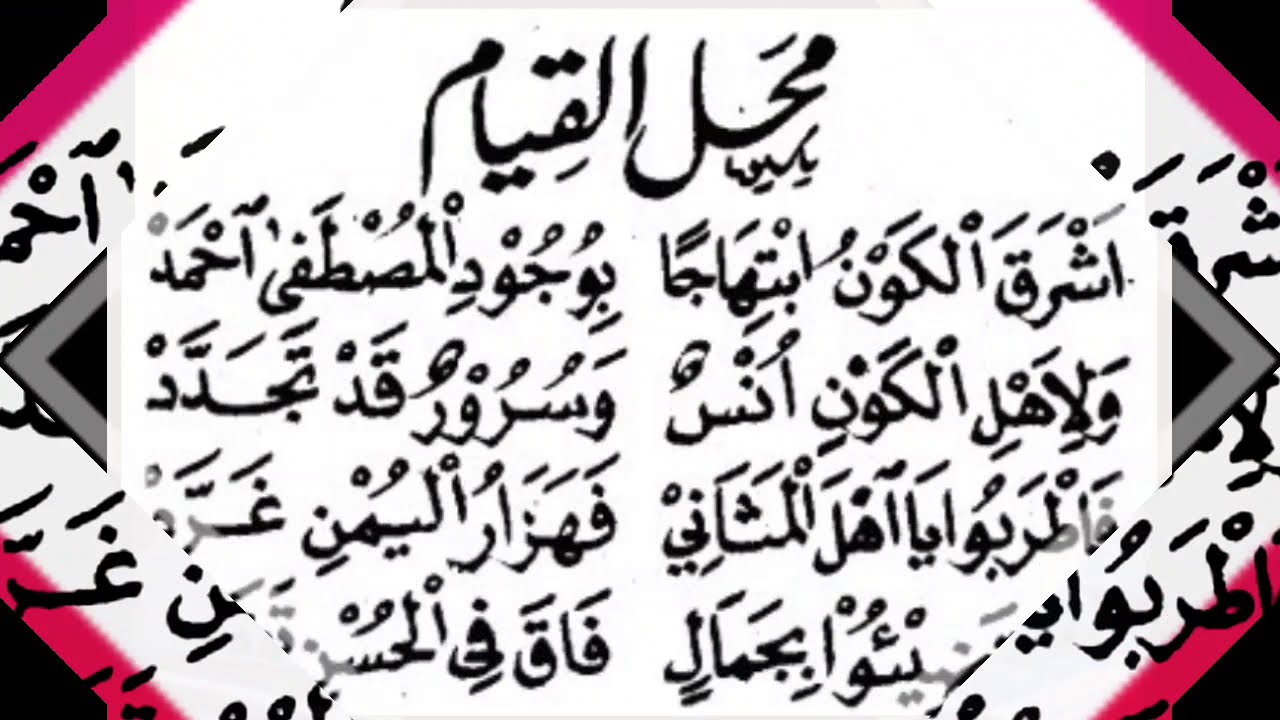 محل القيام
اَشْرَقَ الْكَوْنُ ابْتِهَاجًا بِوُجُوْدِ الْمُصْطَفٰى اَحْمَدْ
وَلِاَهْلِ الْكَوْنِ اُنْسٌ وَسُرُوْرٌ قَدْ تَجَدَّدْ
فَاطْرَبُوا يَا اَهْلَ الْمَثَانِيْ فَهَزَارُ الْيُمْنِ غَرَّدْ
بِجَمَالٍ فَاقَ فِى الْحُسْنِ